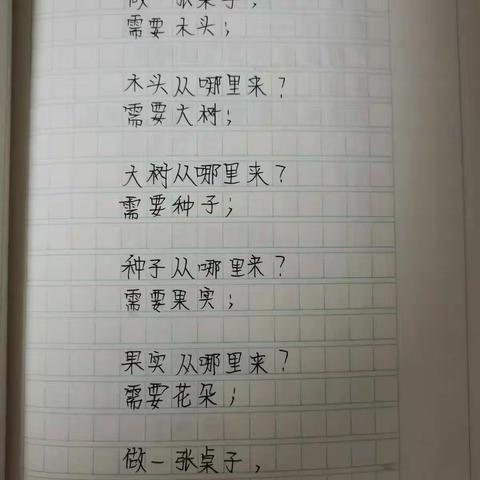 做一张桌子，
需要木头；
木头从哪里来？
需要大树；
大树从哪里来？
需要种子；
种子从哪里来？
需要果实；
果实从哪里来？
需要花朵；
做一张桌子，